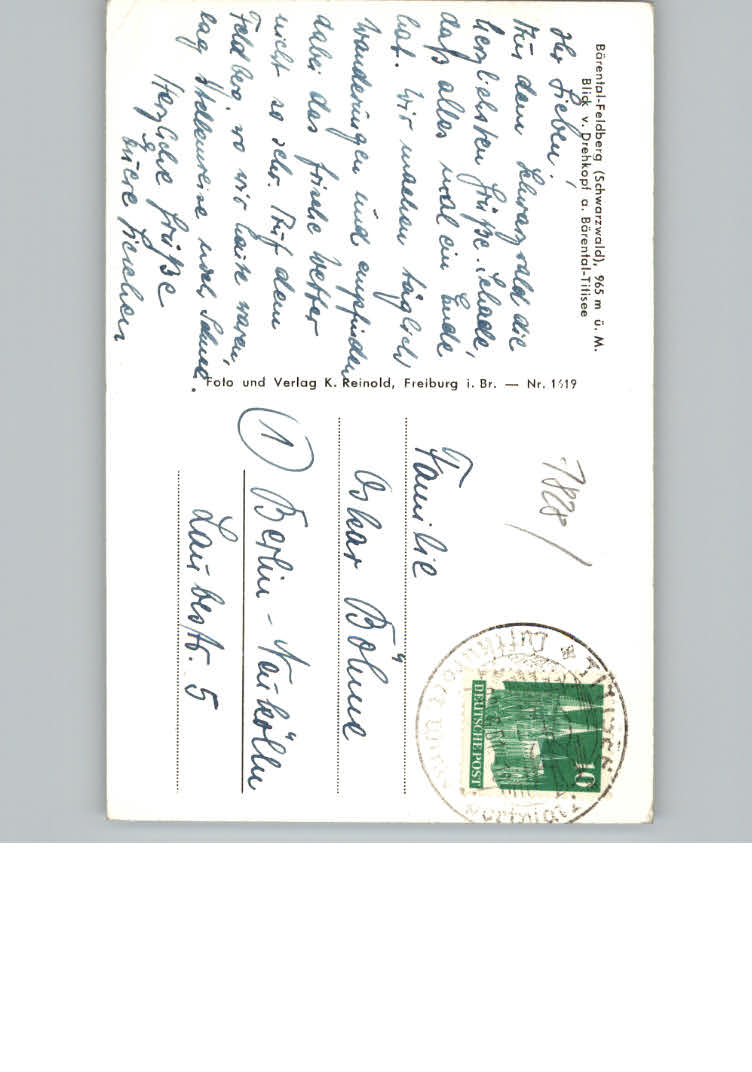 Bärental-Feldberg (Schwarzwald), 965 m ü. M.
Blick v. Drehkopf a. Bärental-Titisee
Ihr Lieben!
Aus dem Schwarzwald die
herzlichsten Grüße. Schade,
daß alles mal ein Ende
hat. Wir machen täglich
Wanderungen und empfinden
dabei das frische Wetter
nicht so sehr. Auf dem
Feldberg, wo wir heute waren,
lag stellenweise noch Schnee.
Herzliche Grüße
Eure
Foto und Verlag K. Reinold, Freiburg i. Br. — Nr. 1619
7828/
Familie
Oskar Böhme
1
Berlin-Neukölln
Laubestr. 5
TITISEE
Luftkurort
10
DEUTSCHE POST